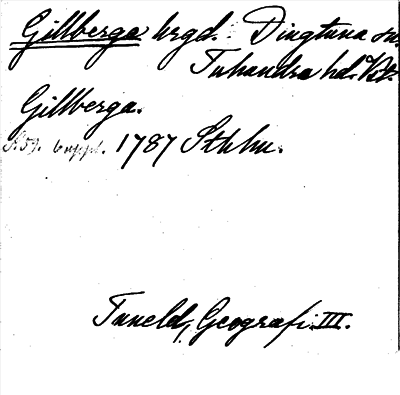 Gillberga hrgd. Dingtuna sn.
Tuhundra hd. Vstm.
Gillberga.
s. 59. 6 uppl. 1787 Sthlm.
Tuneld, Geografi. III.